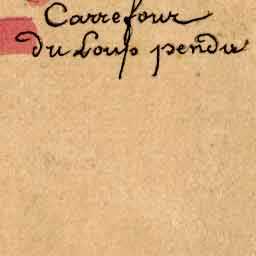 Carrefour
du Loup pendu